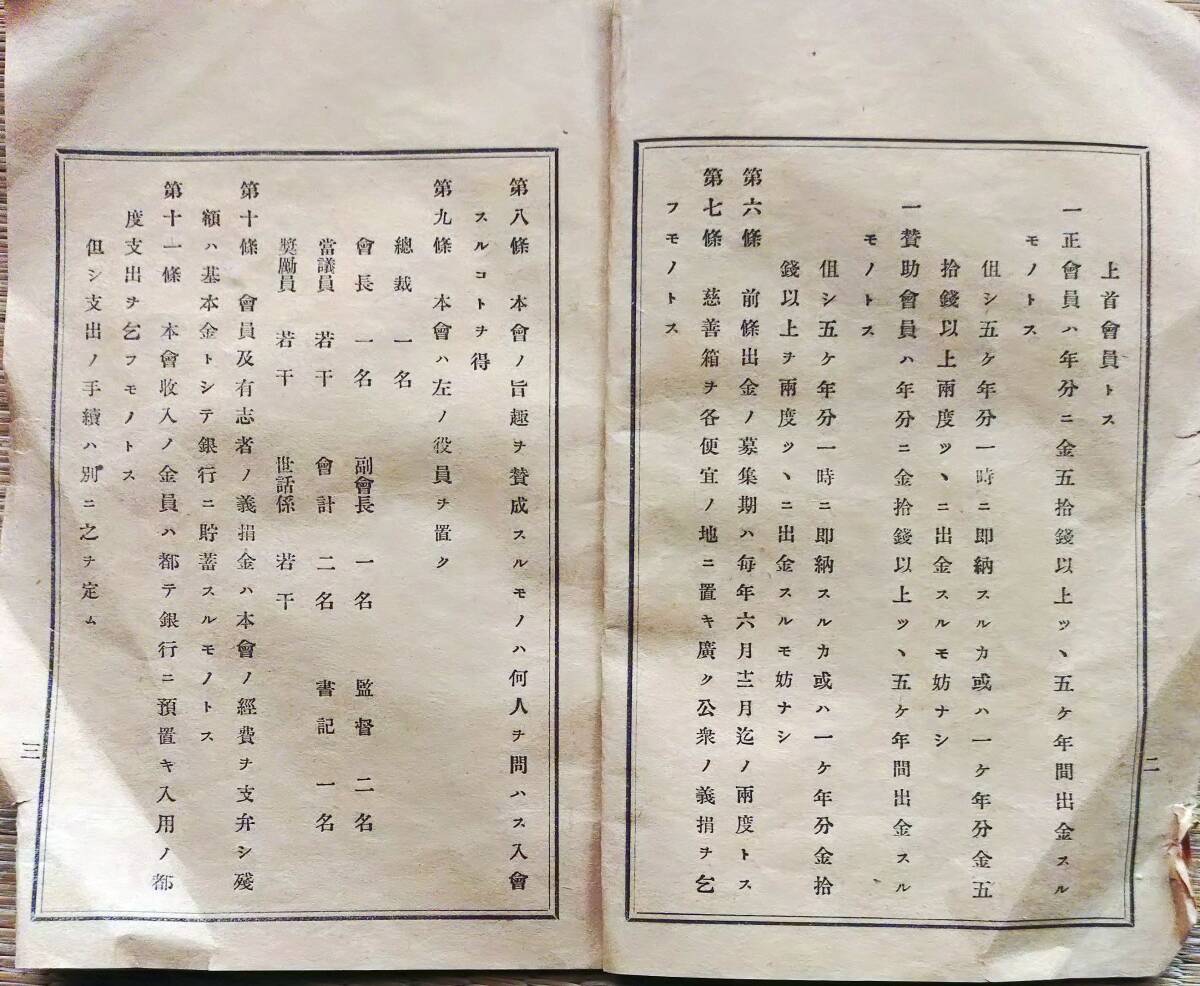 上首會員トス
一正會員ハ年分ニ金五拾錢以上ツヽ五ケ年間出金スル
モノトス
伹シ五ケ年分一時ニ即納スルカ或ハ一ケ年分金五
拾錢以上兩度ツヽニ出金スルモ妨ナシ
一賛助會員ハ年分ニ金拾錢以上ツヽ五ケ年間出金スル
モノトス
伹シ五ケ年分一時ニ即納スルカ或ハ一ケ年分金拾
錢以上ヲ兩度ツヽニ出金スルモ妨ナシ
第六條 前條出金ノ募集期ハ每年六月十二月迄ノ兩度トス
第七條 慈善箱ヲ各便宜ノ地ニ置キ廣ク公衆ノ義捐ヲ乞
フモノトス
二
第八條 本會ノ旨趣ヲ賛成スルモノハ何人ヲ問ハス入會
スルコトヲ得
第九條 本會ハ左ノ役員ヲ置ク
總裁 一名
會長 一名 副會長 一名 監督 二名
當議員 若干 會計 二名 書記 一名
奬勵員 若干 世話係 若干
第十條 會員及有志者ノ義捐金ハ本會ノ經費ヲ支弁シ殘
額ハ基本金トシテ銀行ニ貯蓄スルモノトス
第十一條 本會收入ノ金員ハ都テ銀行ニ預置キ入用ノ都
度支出ヲ乞フモノトス
但シ支出ノ手續ハ別ニ之ヲ定ム
三